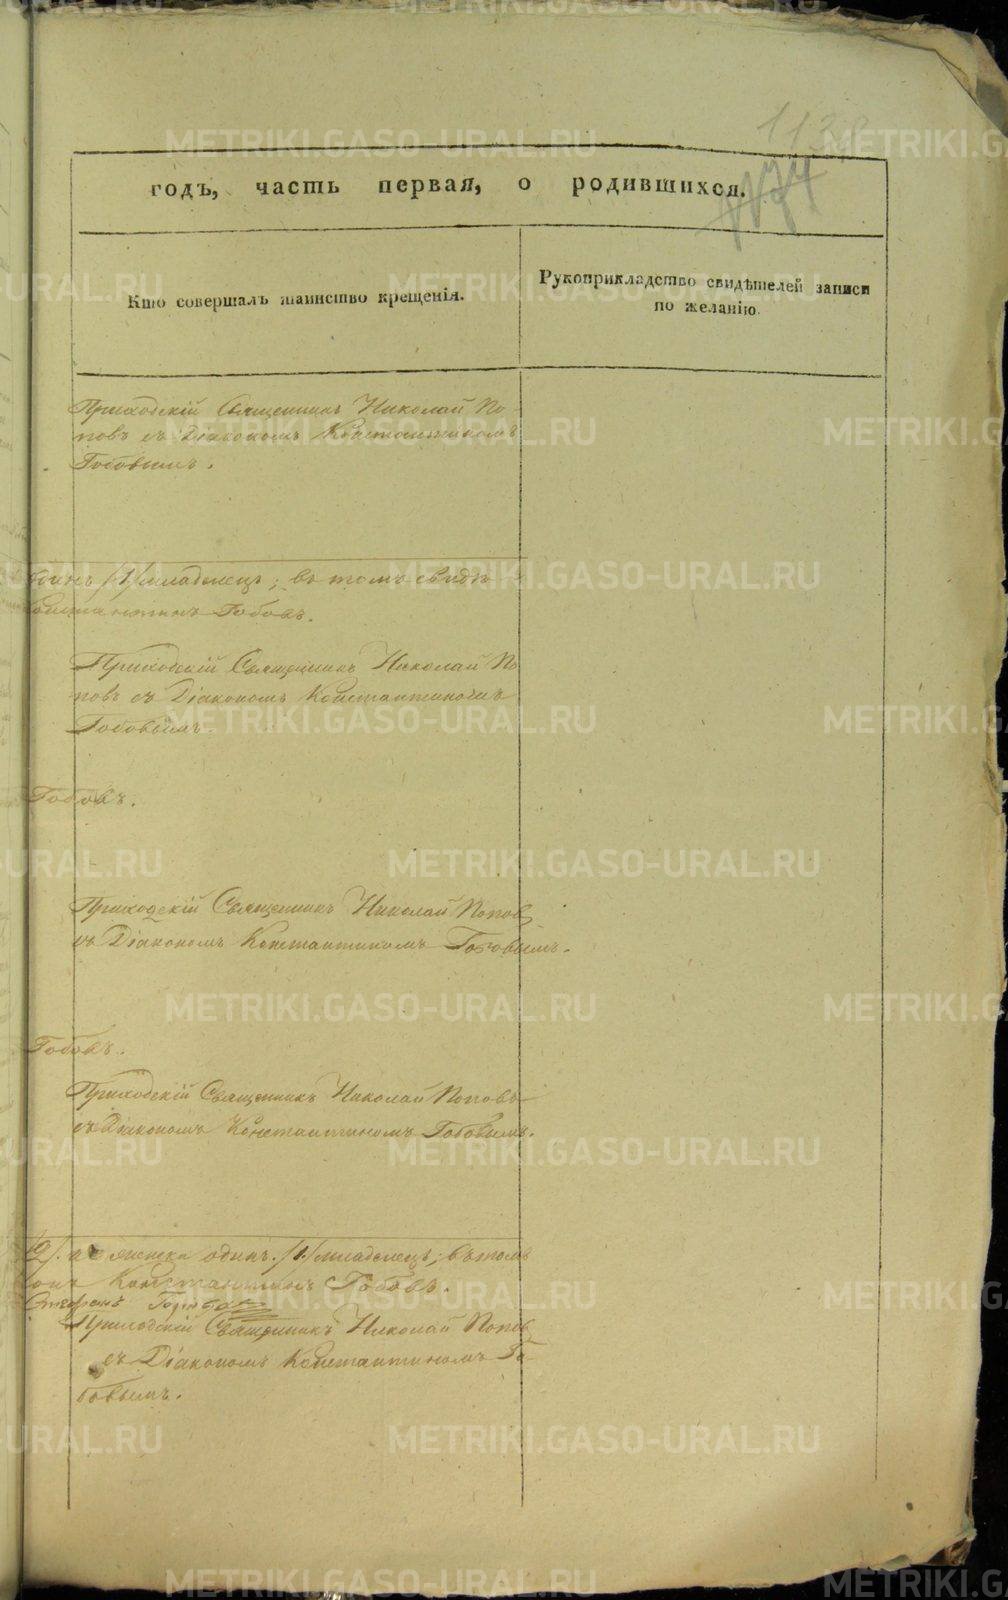 1138
1174
годъ, часть первая, о родившихся.
Кто совершалъ таинство крещенія.
Рукоприкладство свидѣтелей записи
по желанію.
Приходскій Священникъ Николай По-
повъ съ Діакономъ Константиномъ
Гобовымъ.
одинъ /1/ младенецъ; въ томъ свидѣ-
Константинъ Гобовъ.
Приходскій Священникъ Николай По
повъ съ Діакономъ Константиномъ
Гобовымъ.
Гобовъ.
Приходскій Священникъ Николай Поповъ
съ Діакономъ Константиномъ Гобовымъ.
Гобовъ.
Приходскій Священникъ Николай Поповъ
съ Діакономъ Константиномъ Гобовымъ.
/2/. а женска одинъ. /1/ младенецъ; въ томъ
Константинъ Гобовъ.
Приходскій Священникъ Николай Поповъ
съ Діакономъ Константиномъ Го-
бовымъ.
METRIKI.GASO-URAL.RU